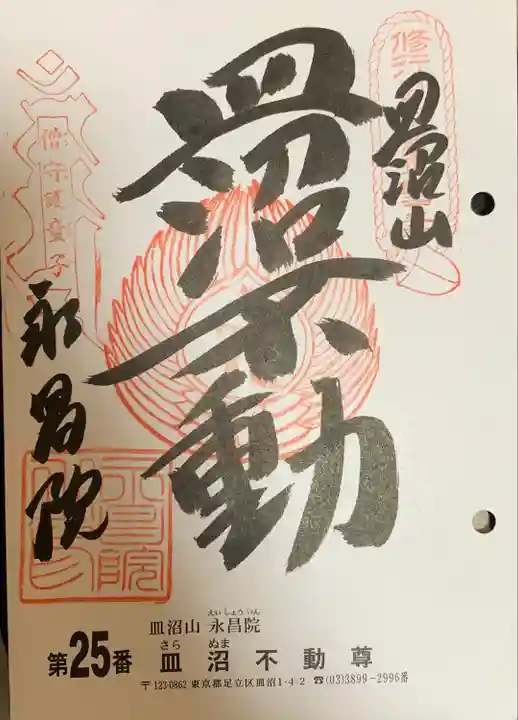 皿沼山
皿沼不動
永昌院
倶守護童子
修行
えいしょういん
皿沼山 永昌院
さら ぬま
第25番 皿沼不動尊
〒123-0862 東京都足立区皿沼1-4-2 ☎(03)3899-2996番